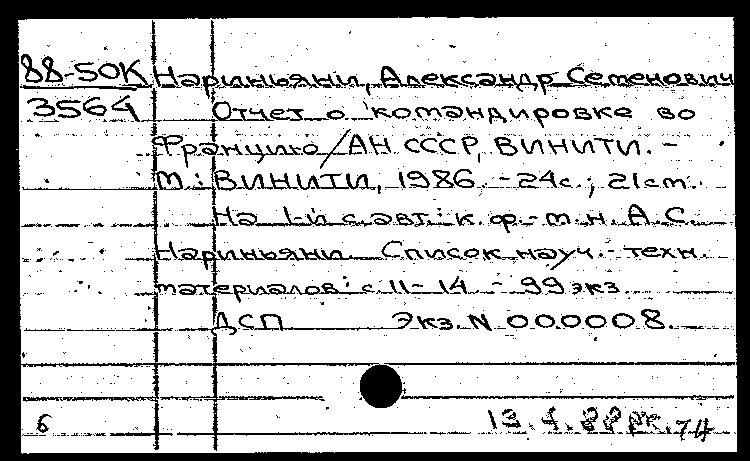 88-50К Нариньяни, Александр Семенович
3564 Отчет о командировке во
Францию/АН СССР, ВИНИТИ. -
М.: ВИНИТИ, 1986. - 24с.; 21см.
На 1-й с. авт.: к. ф.-м. н. А.С.
Нариньяни. Список науч.-техн.
материалов: с. 11-14 - 99 экз.
ДСП Экз. N 000008.
6